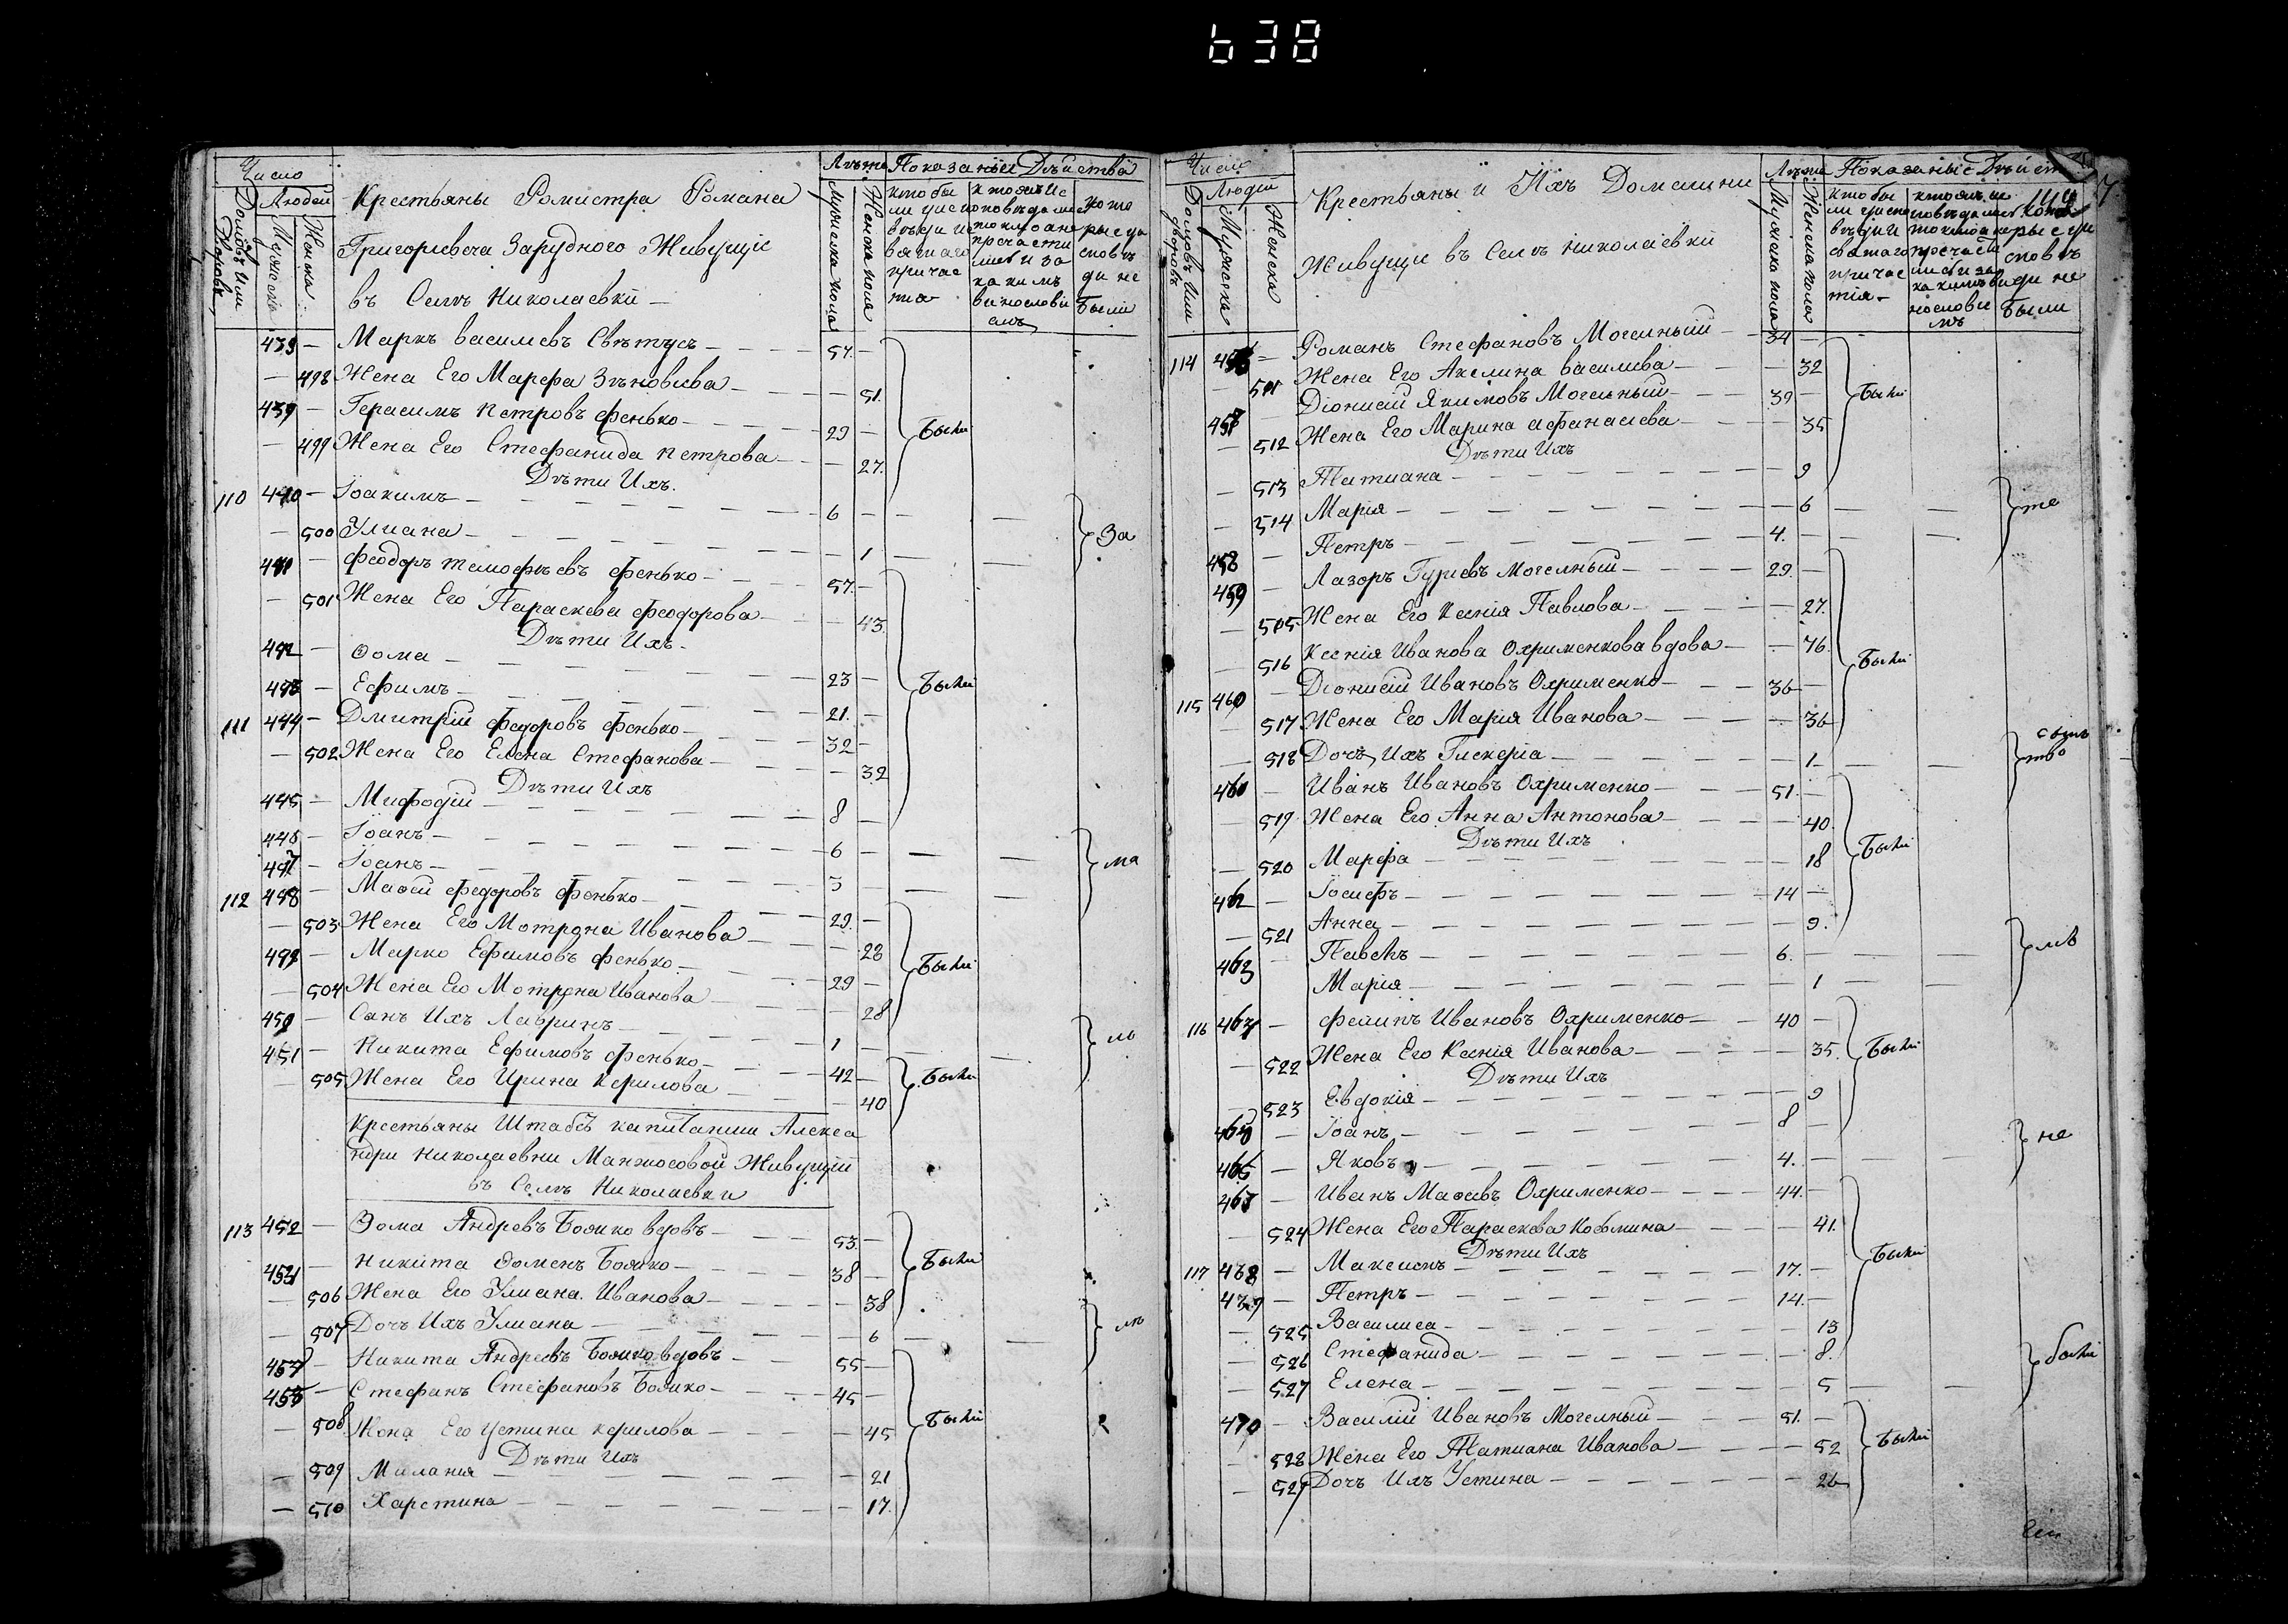 638
Число
Людей
Домовъ или Дворовъ
Мужеска
Женска
Крестьяны Ромистра Романа
Григориевеча Зарудного Живущие
въ Селъ Николаевки
Лъта
Мужеска пола
Женска пола
Показание Дъйства
кто бы
ли у испо
вяти
причас
тия
которые
споведи не
были
438 — Маркъ василиевъ Свътусъ — 57. —
— 498 Жена Его Марфа Зъновиева — 51.
439 — Герасимъ петровъ фенько — 29 —
— 499 Жена Его Стефанида петрова — 27.
Были
Дъти Ихъ.
110 440 — Їоакимъ — 6 — — —
— 500 Улиана — 1 — —
За
441 — Феодоръ тимофъевъ фенько — 57. —
— 501 Жена Его Параскева феодорова — 43.
Дъти Ихъ.
442 — Ѳома — 23 —
443 — Ефимъ — 21. —
Были
111 444 — Дмитрій федоровъ фенько — 32 —
— 502 Жена Его Елена Стефанова — 32
Дъти Ихъ
445 — Мифодій — 8 —
446 — Їоанъ — 6 — — —
447 — Їоанъ — 3 — — —
ма
112 448 — Маѳей федоровъ фенько — 29. —
— 503 Жена Его Мотрона Иванова — 28
449 — Марко Ефимовъ фенько — 29 —
Были
— 504 Жена Его Мотрона Иванова — 28
450 — Санъ Ихъ Лавринъ — 1 — — —
ло
451 — Никита Ефимовъ фенько — 42 —
— 505 Жена Его Ирина керилова — 40
Были
Крестьяны Штабсъ капитанши Алекса
ндри Николаевни Манжосовой Живущій
въ Селъ Николаевки
113 452 — Ѳома Андревъ Бояко вдовъ — 53. —
453 — Никита Ѳоменъ Бояко — 38 —
Были
— 506 Жена Его Улиана Иванова — 38
— 507 Дочъ Ихъ Улиана — 6 — —
лъ
454 — Никита Андреевъ Бояко вдовъ — 55 —
455 — Стефанъ Стефановъ Бояко — 45 —
— 508 Жена Его Устина керилова — 45
Были
Дъти Ихъ
— 509 Милания — 21
— 510 Харстина — 17.
Число
Людей
Домовъ или дворовъ
Мужеска
Женска
Крестьяны и Ихъ Домашни
Живущие въ Селъ николаевки
Лъта
Мужеска пола
Женска пола
Показание Дъйст
кто бы
причас
тія
были
114 456 — Романъ Стефановъ Могелный — 34 —
511 Жена Его Акелина василиева — 32
Были
457 Діонисій Якимовъ Могелный — 39 —
— 512 Жена Его Марина афанасиева — 35
Дъти Ихъ
— 513 Татиана — 9
— 514 Марія — 6 — —
458 — Петръ — 4. — — —
те
459 — Лазоръ Гуриевъ могелный — 29. —
— 515 Жена Его Ксенія Павлова — 27.
— 516 ксенія Иванова Охрименкова вдова — 76.
Были
115 460 — Діонисій Ивановъ Охрименко — 36 —
— 517 Жена Его Марія Иванова — 36
— 518 Дочъ Ихъ Гликеріа — 1 — —
тво
461 — Иванъ Ивановъ Охрименко — 51. —
— 519 Жена Его Анна Антонова — 40.
Дъти Ихъ
— 520 Марфа — 18
Были
462 — Їосифъ — 14 —
— 521 Анна — 9.
463 — Павелъ — 6. — — —
Марія — 1 — —
116 464 — филипъ Ивановъ Охрименко — 40 —
— 522 Жена Его Ксенія Иванова — 35.
Были
Дъти Ихъ
— 523 Евдокія — 9
465 — Їоанъ — 8 —
466 — Яковъ — 4. — — —
не
467 — Иванъ Маѳевъ Охрименко — 44. —
— 524 Жена Его Параскева Козмина — 41.
Дъти Ихъ
Были
117 468 — Максимъ — 17. —
469 — Петръ — 14. —
— 525 Василиса — 13
— 526 Стефанида — 8.
— 527 Елена — 5 — —
были
470 — Василій Ивановъ Могелный — 51. —
— 528 Жена Его Татиана Иванова — 52
Были
— 529 Дочъ Ихъ Устина — 26